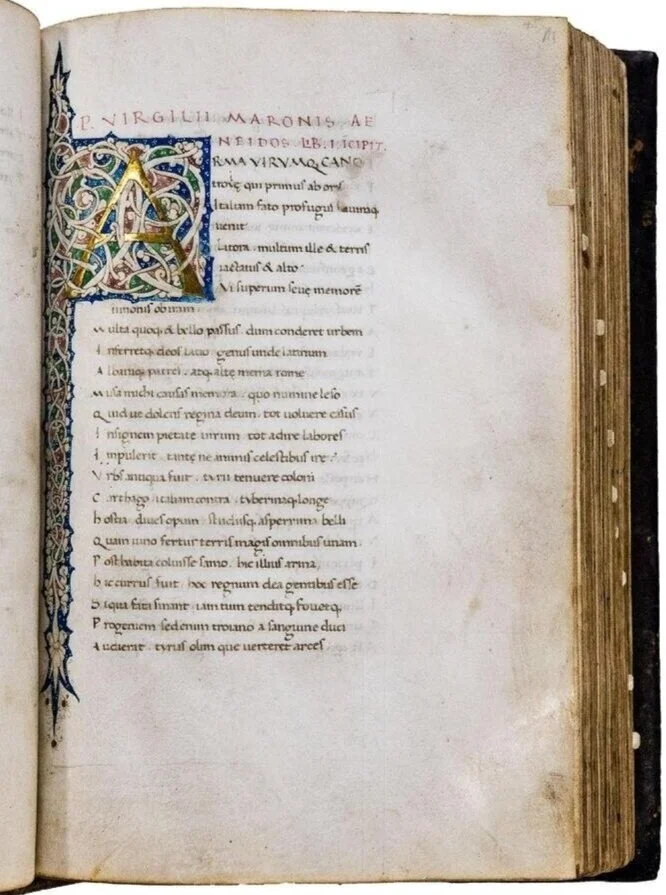 P. VIRGILII MARONIS AE
NEIDOS LB. I. ICIPIT.
ARMA VIRVMQ; CANO
troię qui primus ab oris
Italiam fato profugus lauinaq
uenit
Litora. multum ille & terris
iactatus & alto.
Vi superum seuę memorē
iunonis ob iram
Multa quoq; & bello passus. dum conderet urbem
Inferretq; deos latio genus unde latinum
Albaniq; patres. atq; altę menia rome
Musa michi causas memora. quo numine leso
Quid ue dolens regina deum. tot uoluere casus
Insignem pietate uirum tot adire labores
Impulerit. tantę ne animis celestibus irę.
Vrbs antiqua fuit. tyrii tenuere coloni
Carthago italiam contra. tyberinaq; longe
hostia diues opum studiisq; asperrima belli
Quam iuno fertur terris magis omnibus unam.
Posthabita coluisse samo. hic illius arma,
hic currus fuit hoc regnum dea gentibus esse
Siqua fata sinant iam tum tenditq; fouetq;
Progeniem sed enim troiano a sanguine duci
Audierat tyrias olim que uerteret arces.